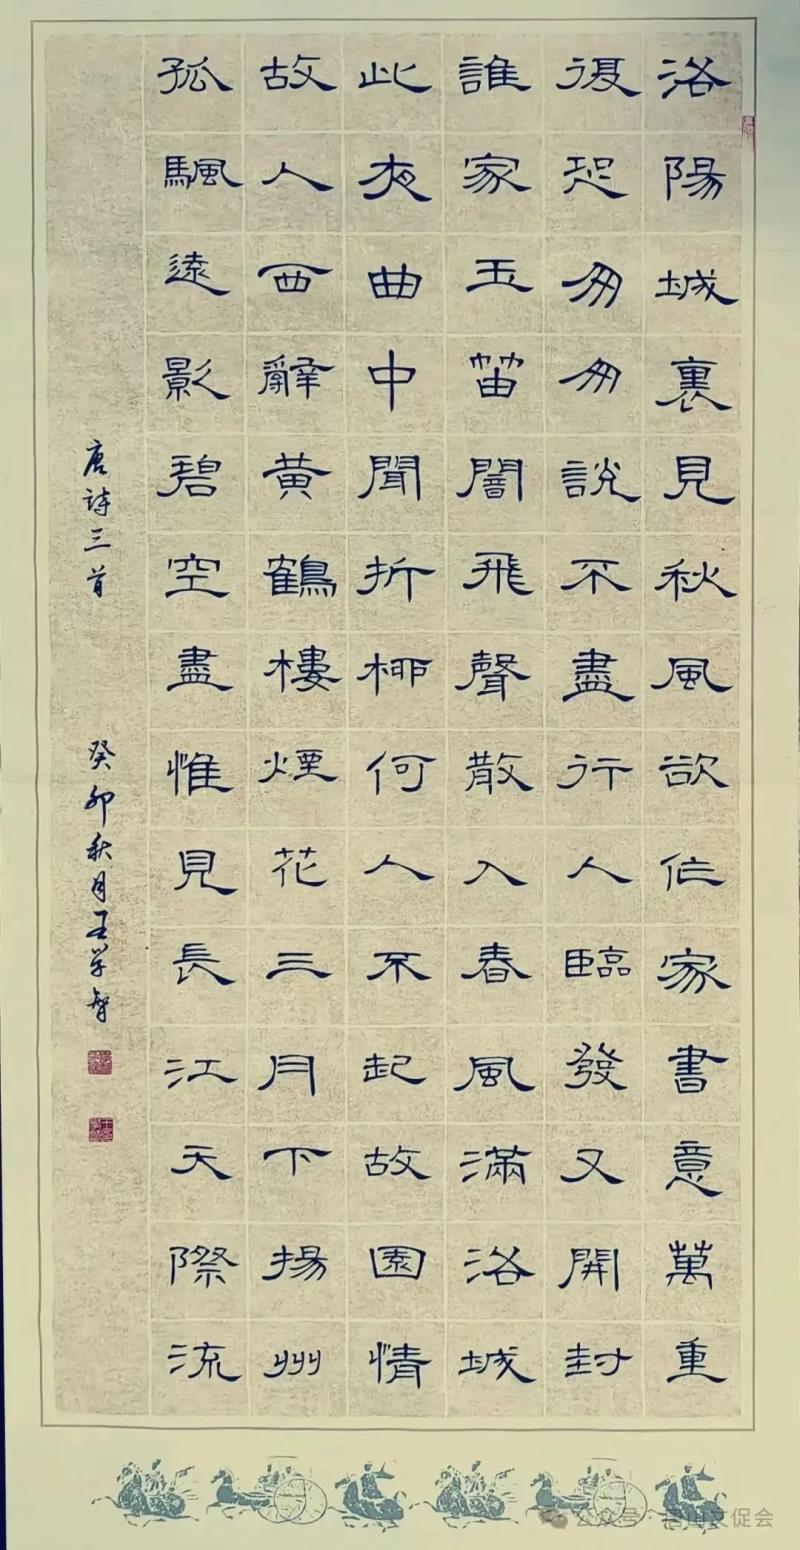 洛陽城裏見秋風欲作家書意萬重
復恐匆匆說不盡行人臨發又開封
誰家玉笛闇飛聲散入春風滿洛城
此夜曲中聞折柳何人不起故園情
故人西辭黃鶴樓煙花三月下揚州
孤颿遠影碧空盡惟見長江天際流
唐詩三首
癸卯秋月王学智
公众号·唐山文促会